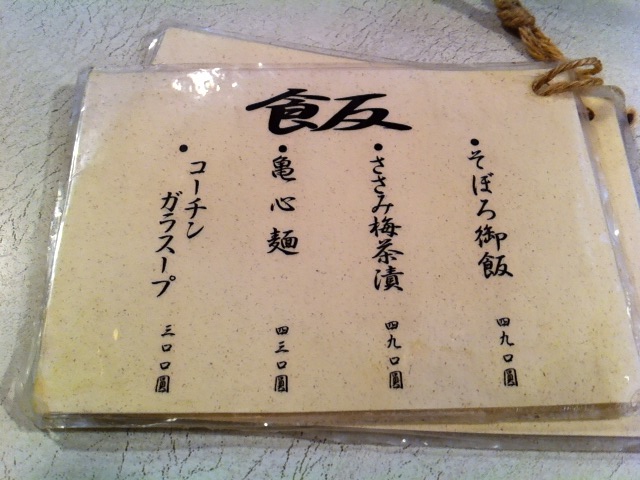 飯
・そぼろ御飯 四九〇圓
・ささみ梅茶漬 四九〇圓
・亀心麺 四三〇圓
・コーチン
ガラスープ 三〇〇圓